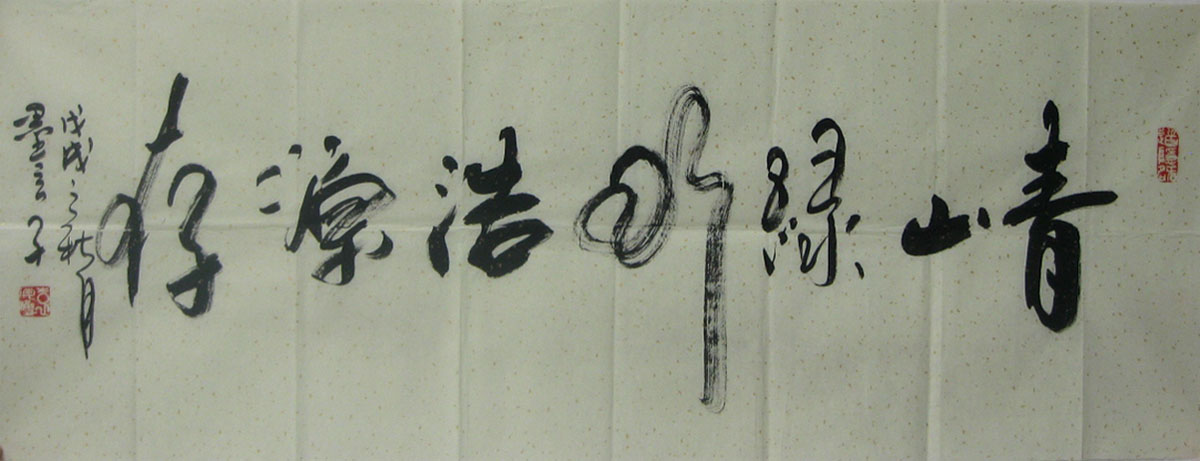 青山绿野浩存
戊戌之秋月
墨云子